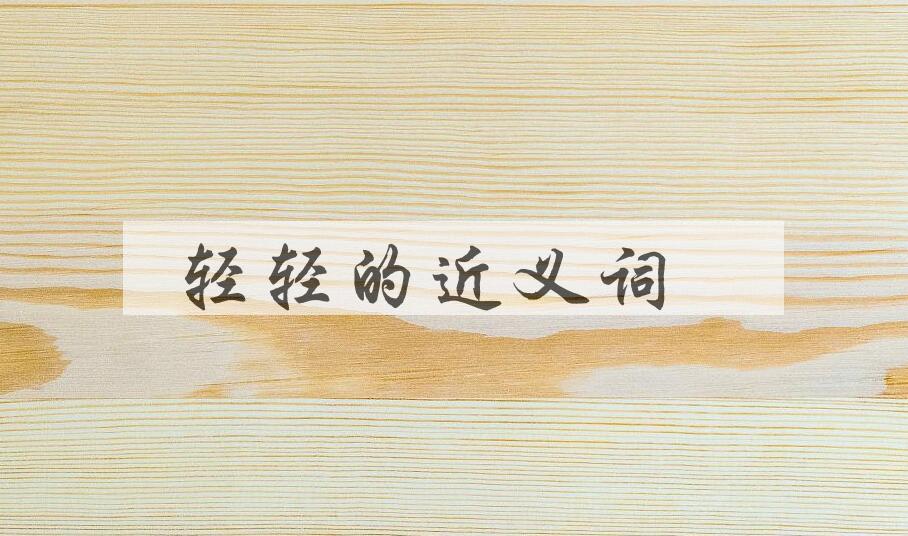 轻轻的近义词